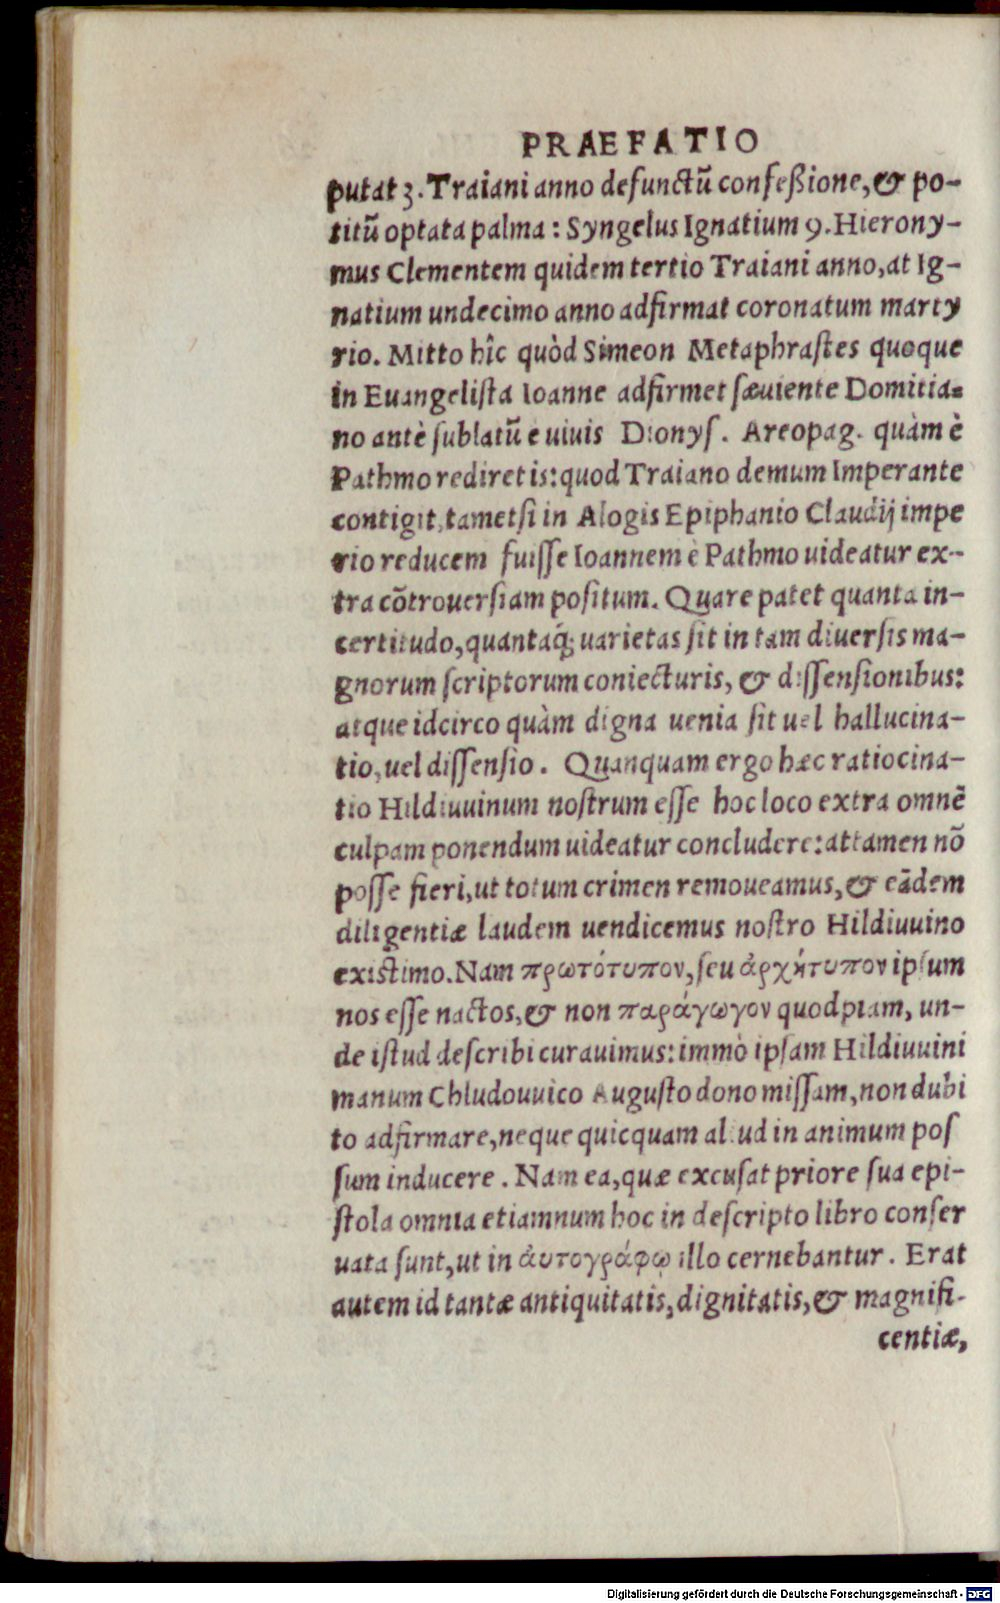 PRAEFATIO
putat 3. Traiani anno defunctũ confeßione, & po-
titũ optata palma: Syngelus Ignatium 9. Hierony-
mus Clementem quidem tertio Traiani anno, at Ig-
natium undecimo anno adfirmat coronatum marty
rio. Mitto hîc quòd Simeon Metaphraſtes quoque
in Euangeliſta Ioanne adfirmet ſæuiente Domitia=
no antè ſublatũ e uiuis Dionyſ. Areopag. quàm è
Pathmo rediret is: quod Traiano demum Imperante
contigit, tametſi in Alogis Epiphanio Claudij impe
rio reducem fuiſſe Ioannem è Pathmo uideatur ex-
tra cõtrouerſiam poſitum. Quare patet quanta in-
certitudo, quantaq́; uarietas ſit in tam diuerſis ma-
gnorum ſcriptorum coniecturis, & diſſenſionibus:
atque idcirco quàm digna uenia ſit uel hallucina-
tio, uel diſſenſio. Quanquam ergo hæc ratiocina-
tio Hildiuuinum noſtrum eſſe hoc loco extra omnẽ
culpam ponendum uideatur concludere: attamen nõ
poſſe fieri, ut totum crimen remoueamus, & eãdem
diligentiæ laudem uendicemus noſtro Hildiuuino
exiſtimo. Nam πρωτότυπον, ſeu ἀρχήτυπον ipſum
nos eſſe nactos, & non παράγωγον quodpiam, un-
de iſtud deſcribi curauimus: immò ipſam Hildiuuini
manum Chludouuico Auguſto dono miſſam, non dubi
to adfirmare, neque quicquam aliud in animum poſ
ſum inducere. Nam ea, quæ excuſat priore ſua epi-
ſtola omnia etiamnum hoc in deſcripto libro conſer
uata ſunt, ut in ἀυτογράφῳ illo cernebantur. Erat
autem id tantæ antiquitatis, dignitatis, & magnifi-
centiæ,
Digitalisierung gefördert durch die Deutsche Forschungsgemeinschaft - DFG